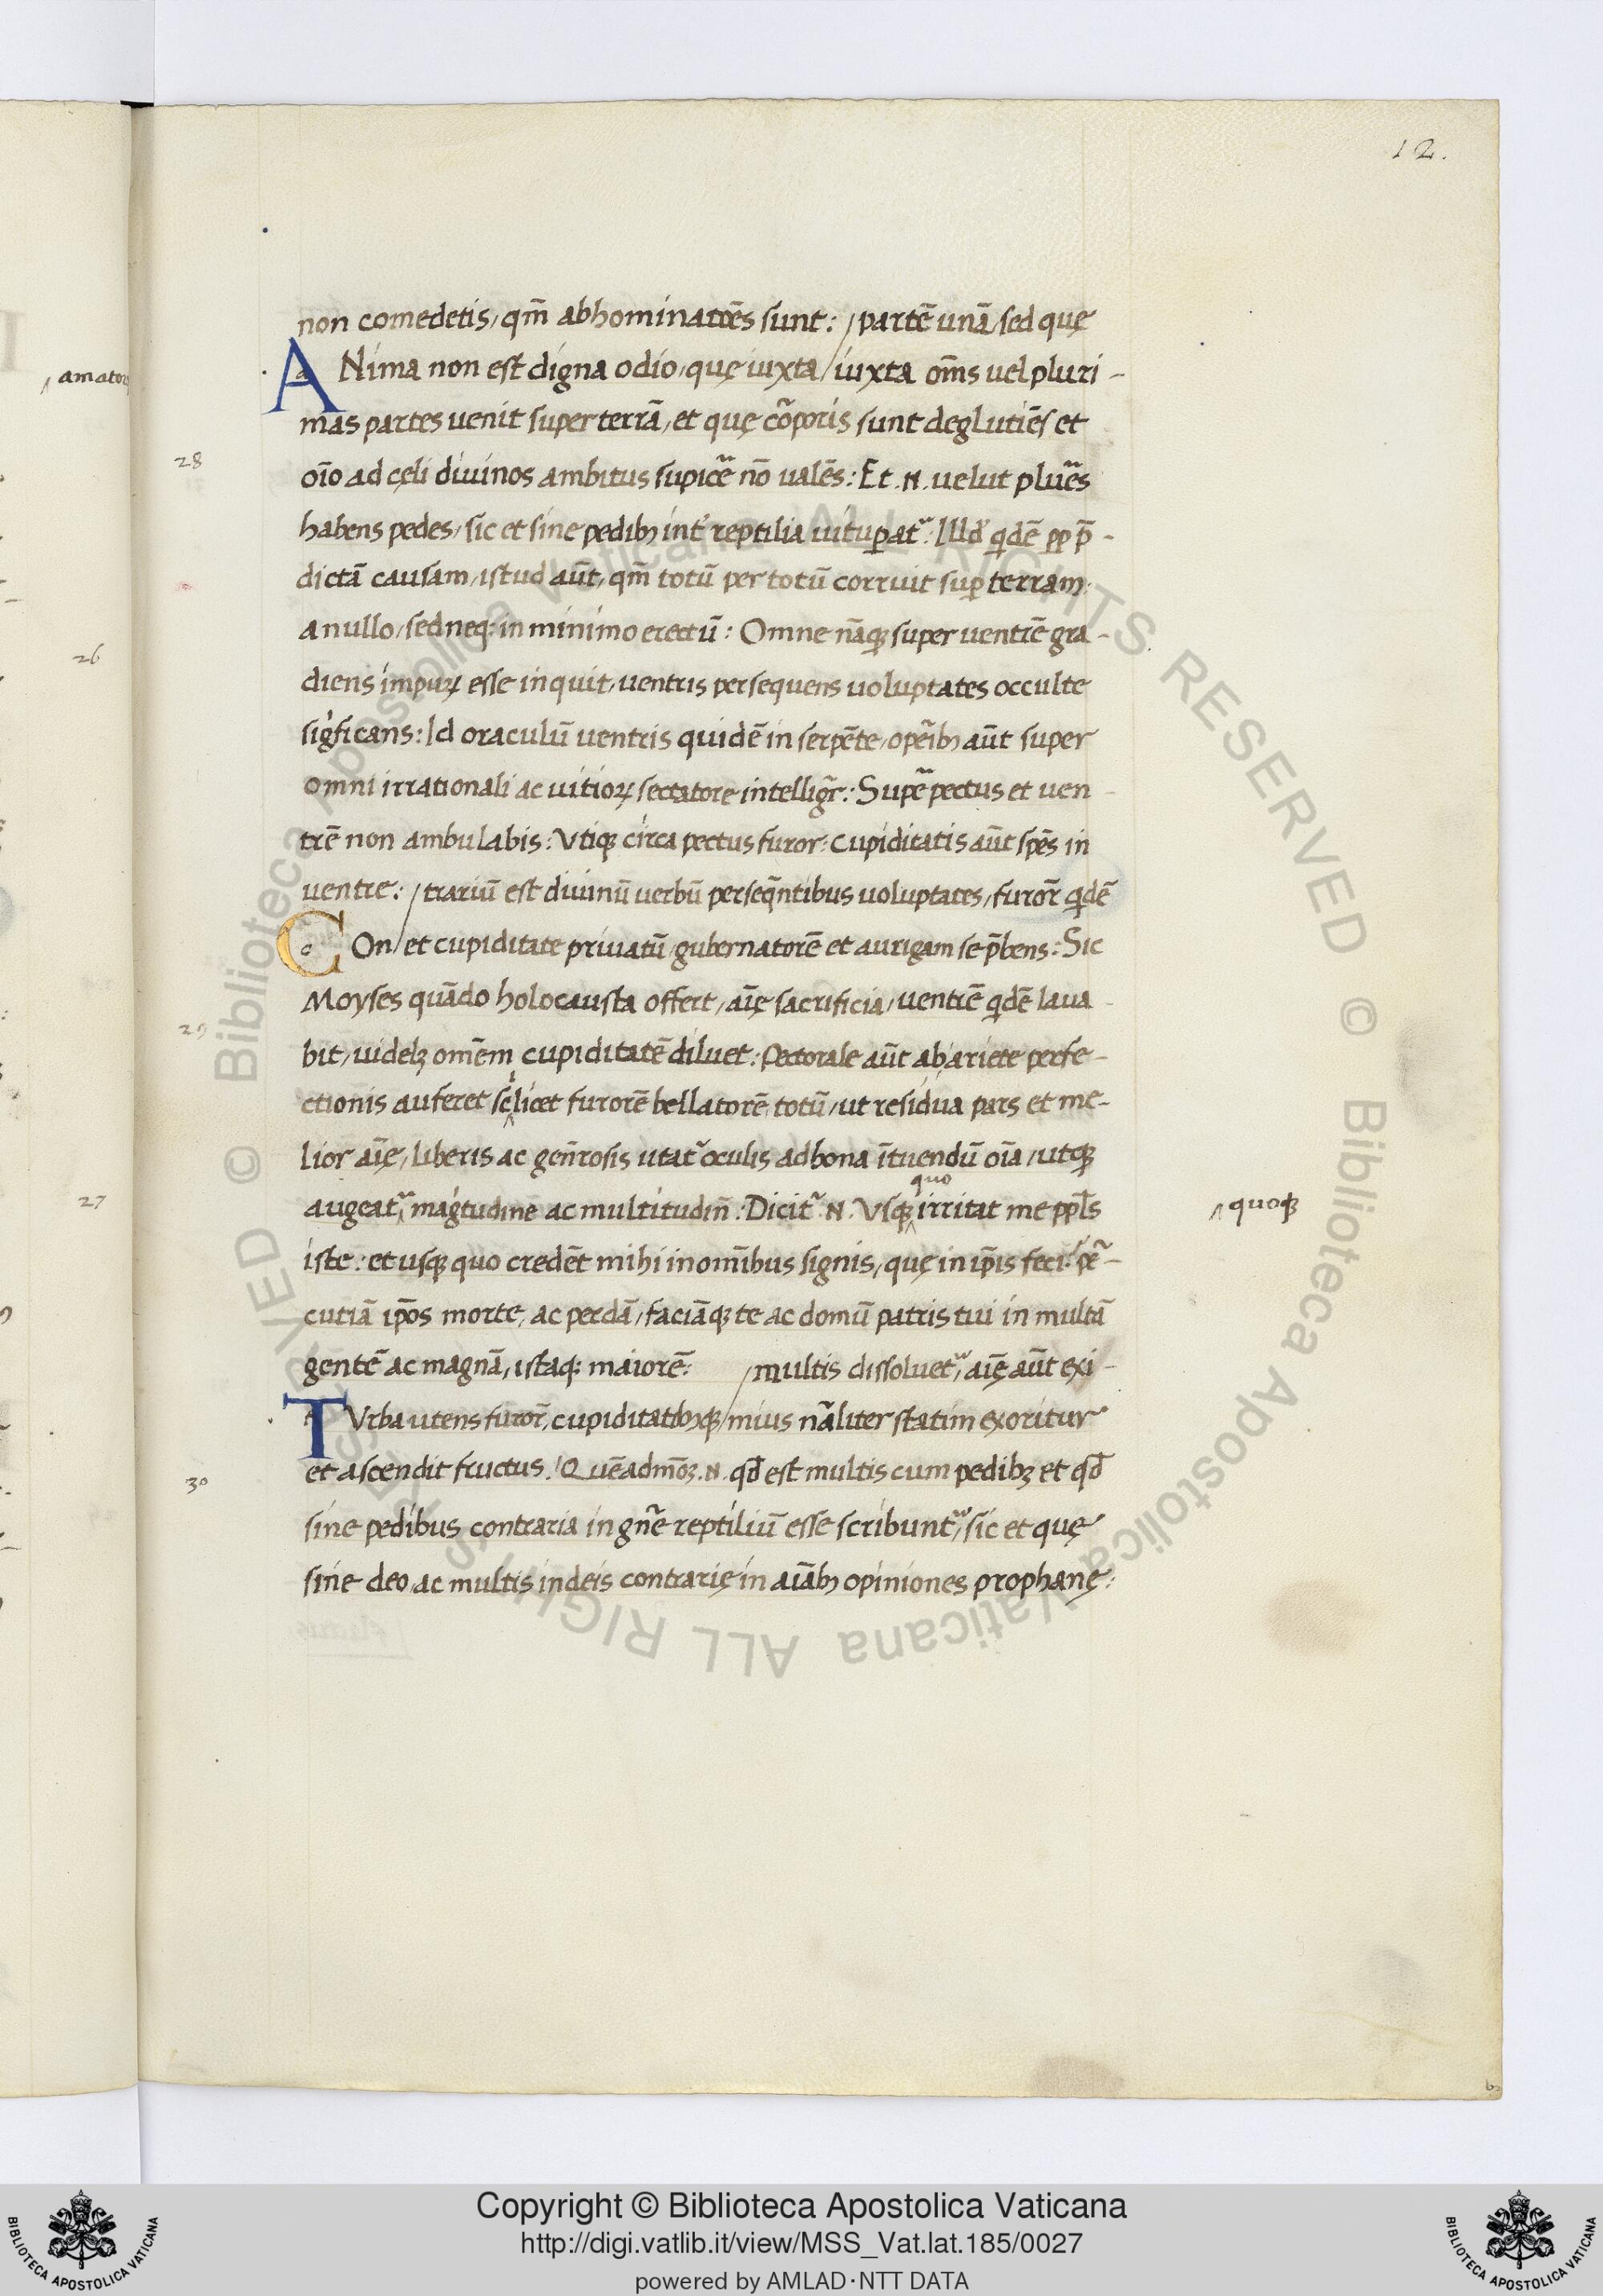 12.
non comedetis, qm̄ abhominatōēs sunt: / partē unā, sed quę
ANima non est digna odio, quę iuxta / iuxta om̄s uel pluri-
mas partes uenit super terrā, et quę cōꝑoris sunt deglutiēs et
28
oīo ad cęli diuinos ambitus suspicē nō ualēs: Et .N. uelut pluēs
habens pedes, sic et sine pedibȝ int' reptilia uituꝑat᷑: Illd' qdē ꝓp p̄-
dictā causam, istud aūt, qm̄ totū per totū corruit suꝑ terram:
a nullo, sed neqȝ in minimo erectū: Omne nāqȝ super uentrē gra-
diens impuꝝ esse inquit, uentris persequens uoluptates occulte
sigficans: Id oraculū uentris quidē in serpēte, opēibȝ aūt super
omni irrationali ac uitioꝝ sectatore intelligr̄: Supē pectus et uen-
trē non ambulabis: Vtiqȝ circa pectus furor: Cupiditatis aūt spēs in
uentre: / trariū est diuinū uerbū perseq̄ntibus uoluptates, furor̄ qdē
COn / et cupiditate priuatū, gubernatorē et aurigam se p̄bens: Sic
Moyses quādo holocausta offert, aīę sacrificia, uentrē qdē laua-
29
bit, uidelȝ omēm cupiditatē diluet: Pectorale aūt ab ariete perfe-
ctionis auferet scilicet furorē bellatorē totū, ut residua pars et me-
lior aīę, liberis ac gen̄rosis utat᷑ oculis ad bona ītuendū oīa, utqȝ
quo
augeat᷑ magtudine ac multitudin̄: Dicit᷑ .N. Vsqȝ irritat me ppl̄s
quoqȝ
iste: et usqȝ quo credēt mihi in om̄ibus signis, quę in ip̄is feci: pē-
cutiā ip̄os morte, ac perdā, faciāqȝ te ac domū patris tui in multā
gentē ac magnā, istaqȝ maiorē: / multis dissoluet᷑, aīę aūt exi-
TVrba utens furor̄, cupiditatibȝqȝ / mius nāliter statim exoritur
30
et ascendit fructus: Quēadmōȝ .N. qd̄ est multis cum pedibȝ et qd̄
sine pedibus contraria in gn̄e reptiliū esse scribunt᷑, sic et quę
sine deo, ac multis in deis contrarię in aīabȝ opiniones prophanę:
amator
26
27
Copyright © Biblioteca Apostolica Vaticana
http://digi.vatlib.it/view/MSS_Vat.lat.185/0027
powered by AMLAD·NTT DATA
BIBLIOTECA APOSTOLICA VATICANA
BIBLIOTECA APOSTOLICA VATICANA
© Biblioteca Apostolica Vaticana ALL RIGHTS RESERVED © Biblioteca Apostolica Vaticana ALL RIGHTS RESERVED